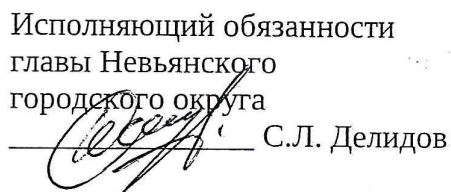 Исполняющий обязанности
главы Невьянского
городского округа
С.Л. Делидов